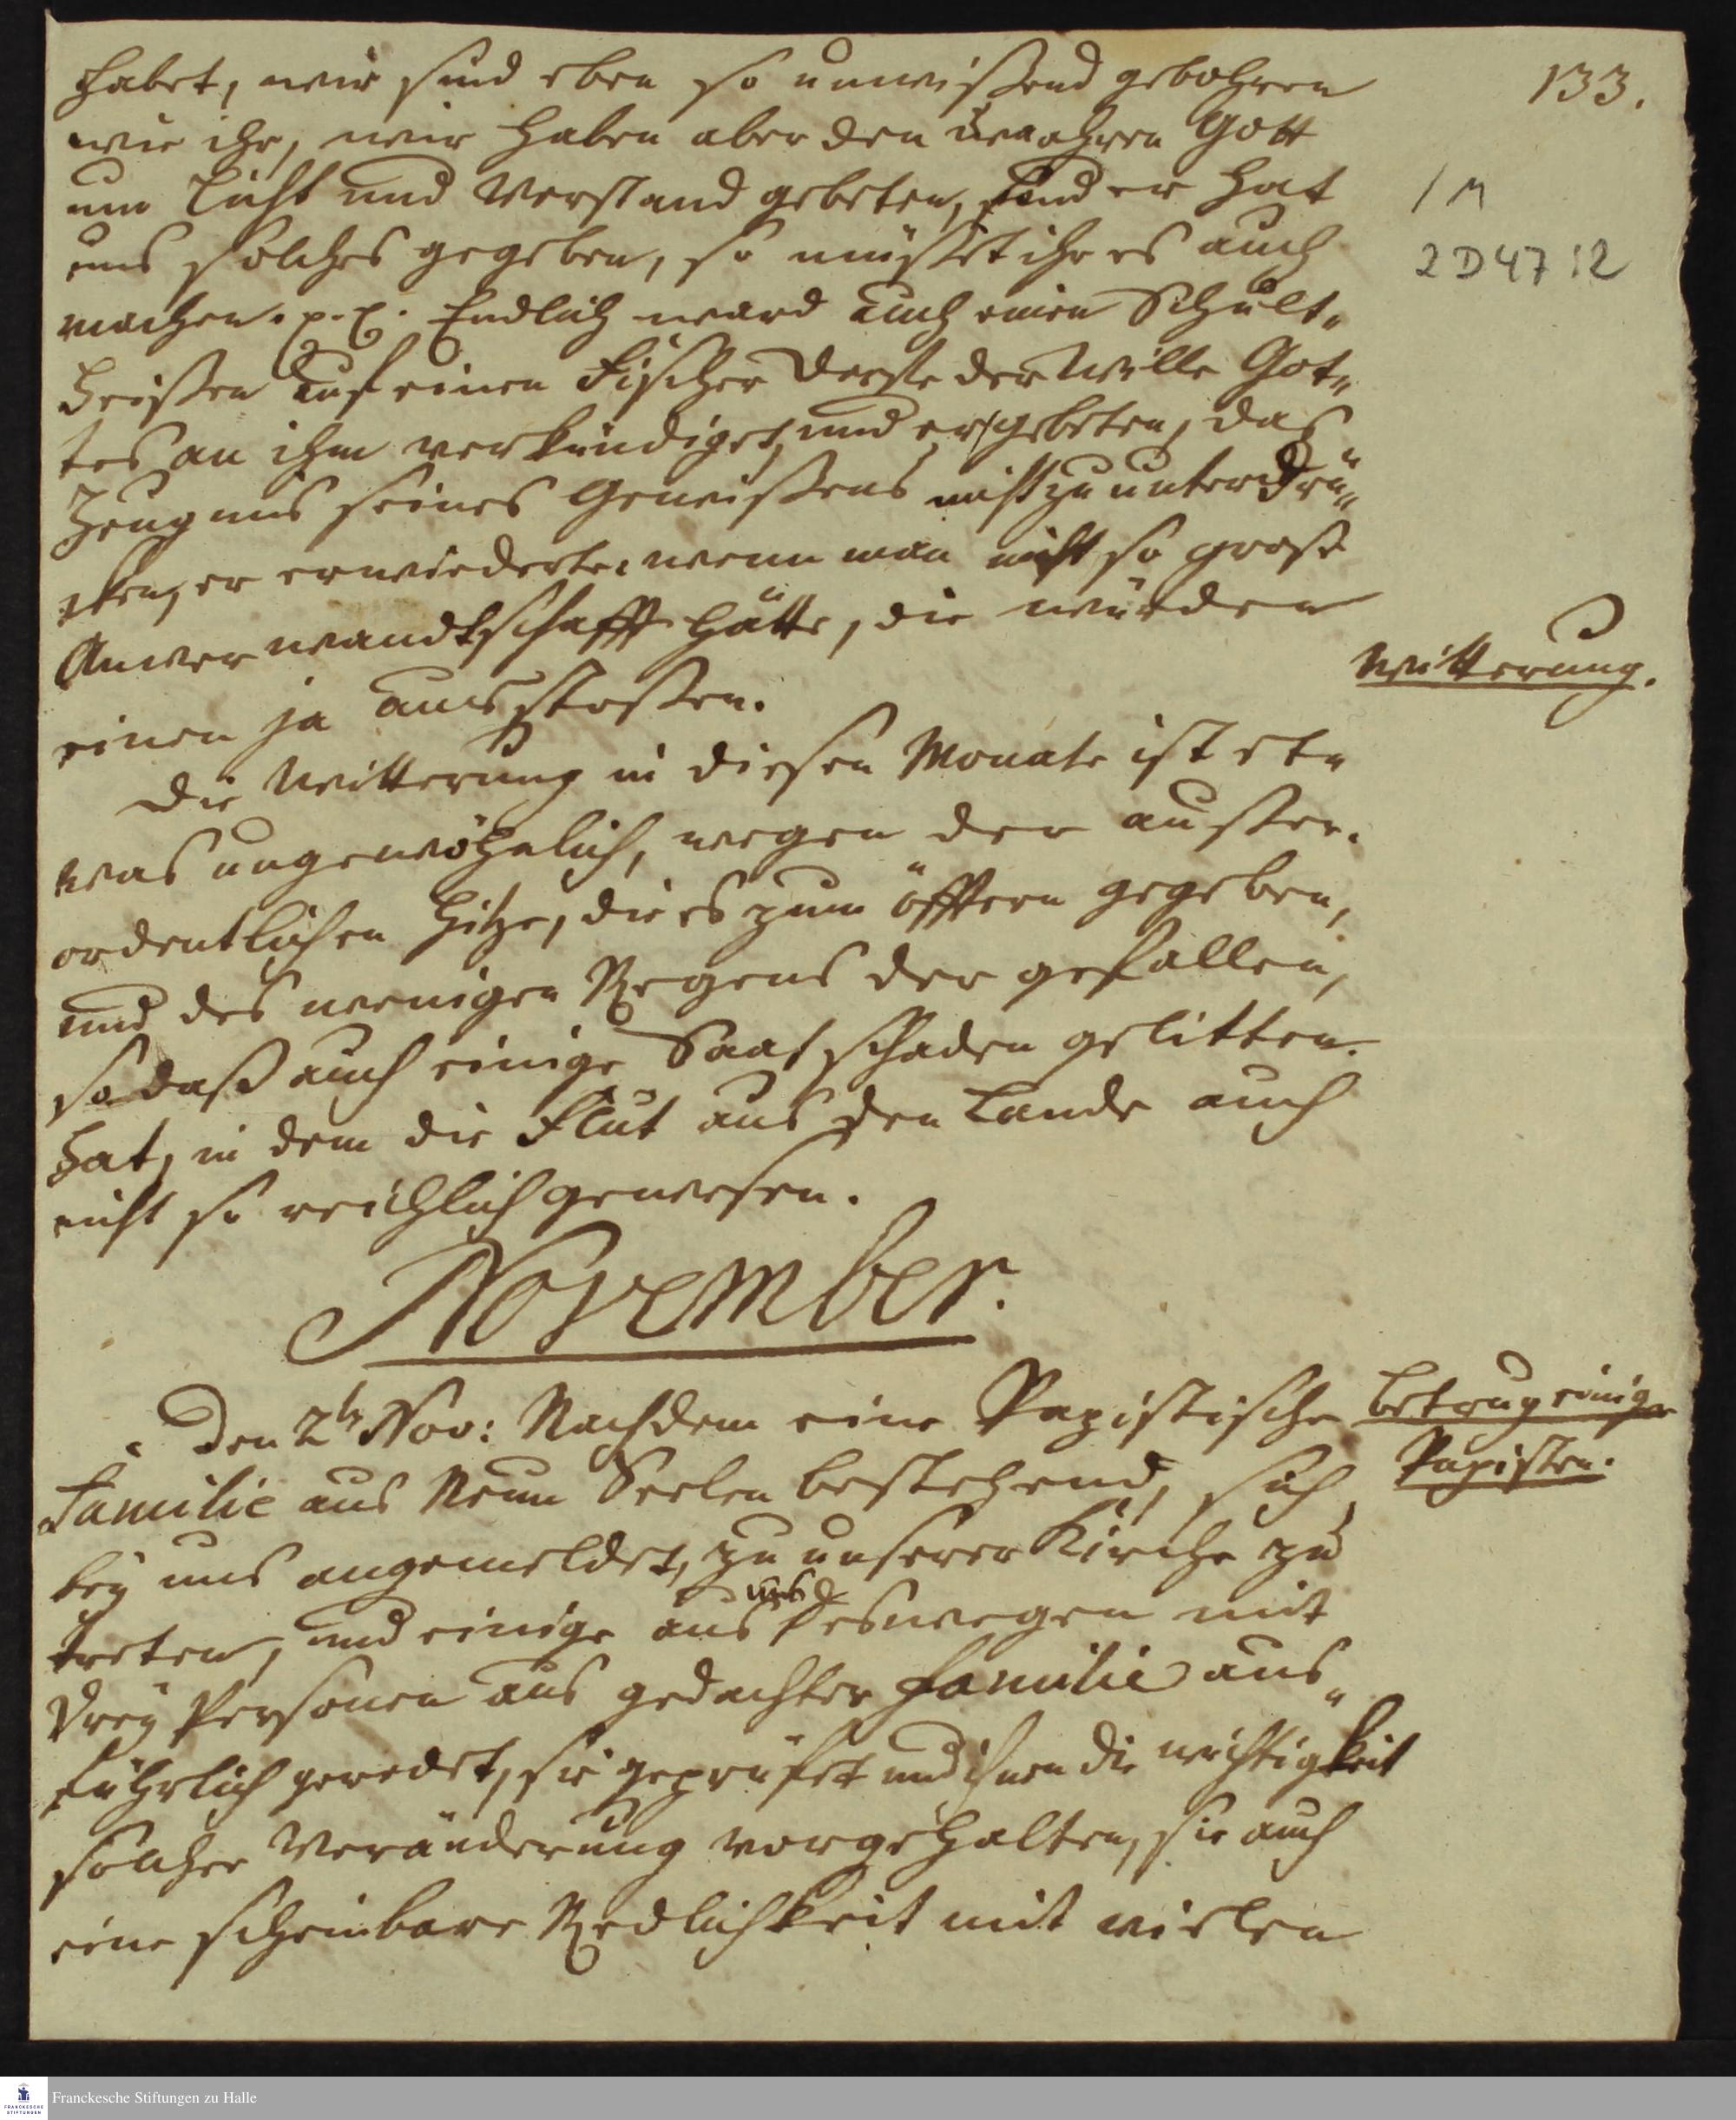 133.
habet, wir sind eben so unwißend gebohren
wie ihr, wir haben aber den wahren Gott
um Licht und Verstand gebeten, und er hat
uns solches gegeben, so müßet ihr es auch
machen. p. p. Endlich ward auch einen Schult„
heißen auf einen Fischer Dorfe der Wille Got„
tes an ihm verkündiget, und er gebeten, das
Zeugnis seines Gewißens nicht zu unterdrü„
cken, er erwiederte: wenn man nicht so große
Anverwandtschafft hätte, die würden
einen ja ausstoßen.
Witterung.
Die Witterung in diesen Monate ist et„
was ungewöhnlich, wegen der außer„
ordentlichen Hitze, die es zum öfftern gegeben,
und des wenigen Regens der gefallen,
so daß auch einige Saat schaden gelitten
hat, in dem die Flut aus den Lande auch
nicht so reichlich gewesen.
November.
Den 2t Nov: Nachdem eine Papistische
Betrug einiger
Papisten.
Familie aus Neun Seelen bestehend, sich
bey uns angemeldet, zu unserer Kirche zu
treten, und einige aus uns deswegen mit
drey Personen aus gedachter Familie aus„
führlich geredet, sie geprüfet und ihnen die wichtigkeit
solcher Veränderung vorgehalten, sie auch
eine scheinbare Redlichkeit mit vielen
1 M
2 D 47 : 2
Franckesche Stiftungen zu Halle
FRANCKESCHE
STIFTUNGEN